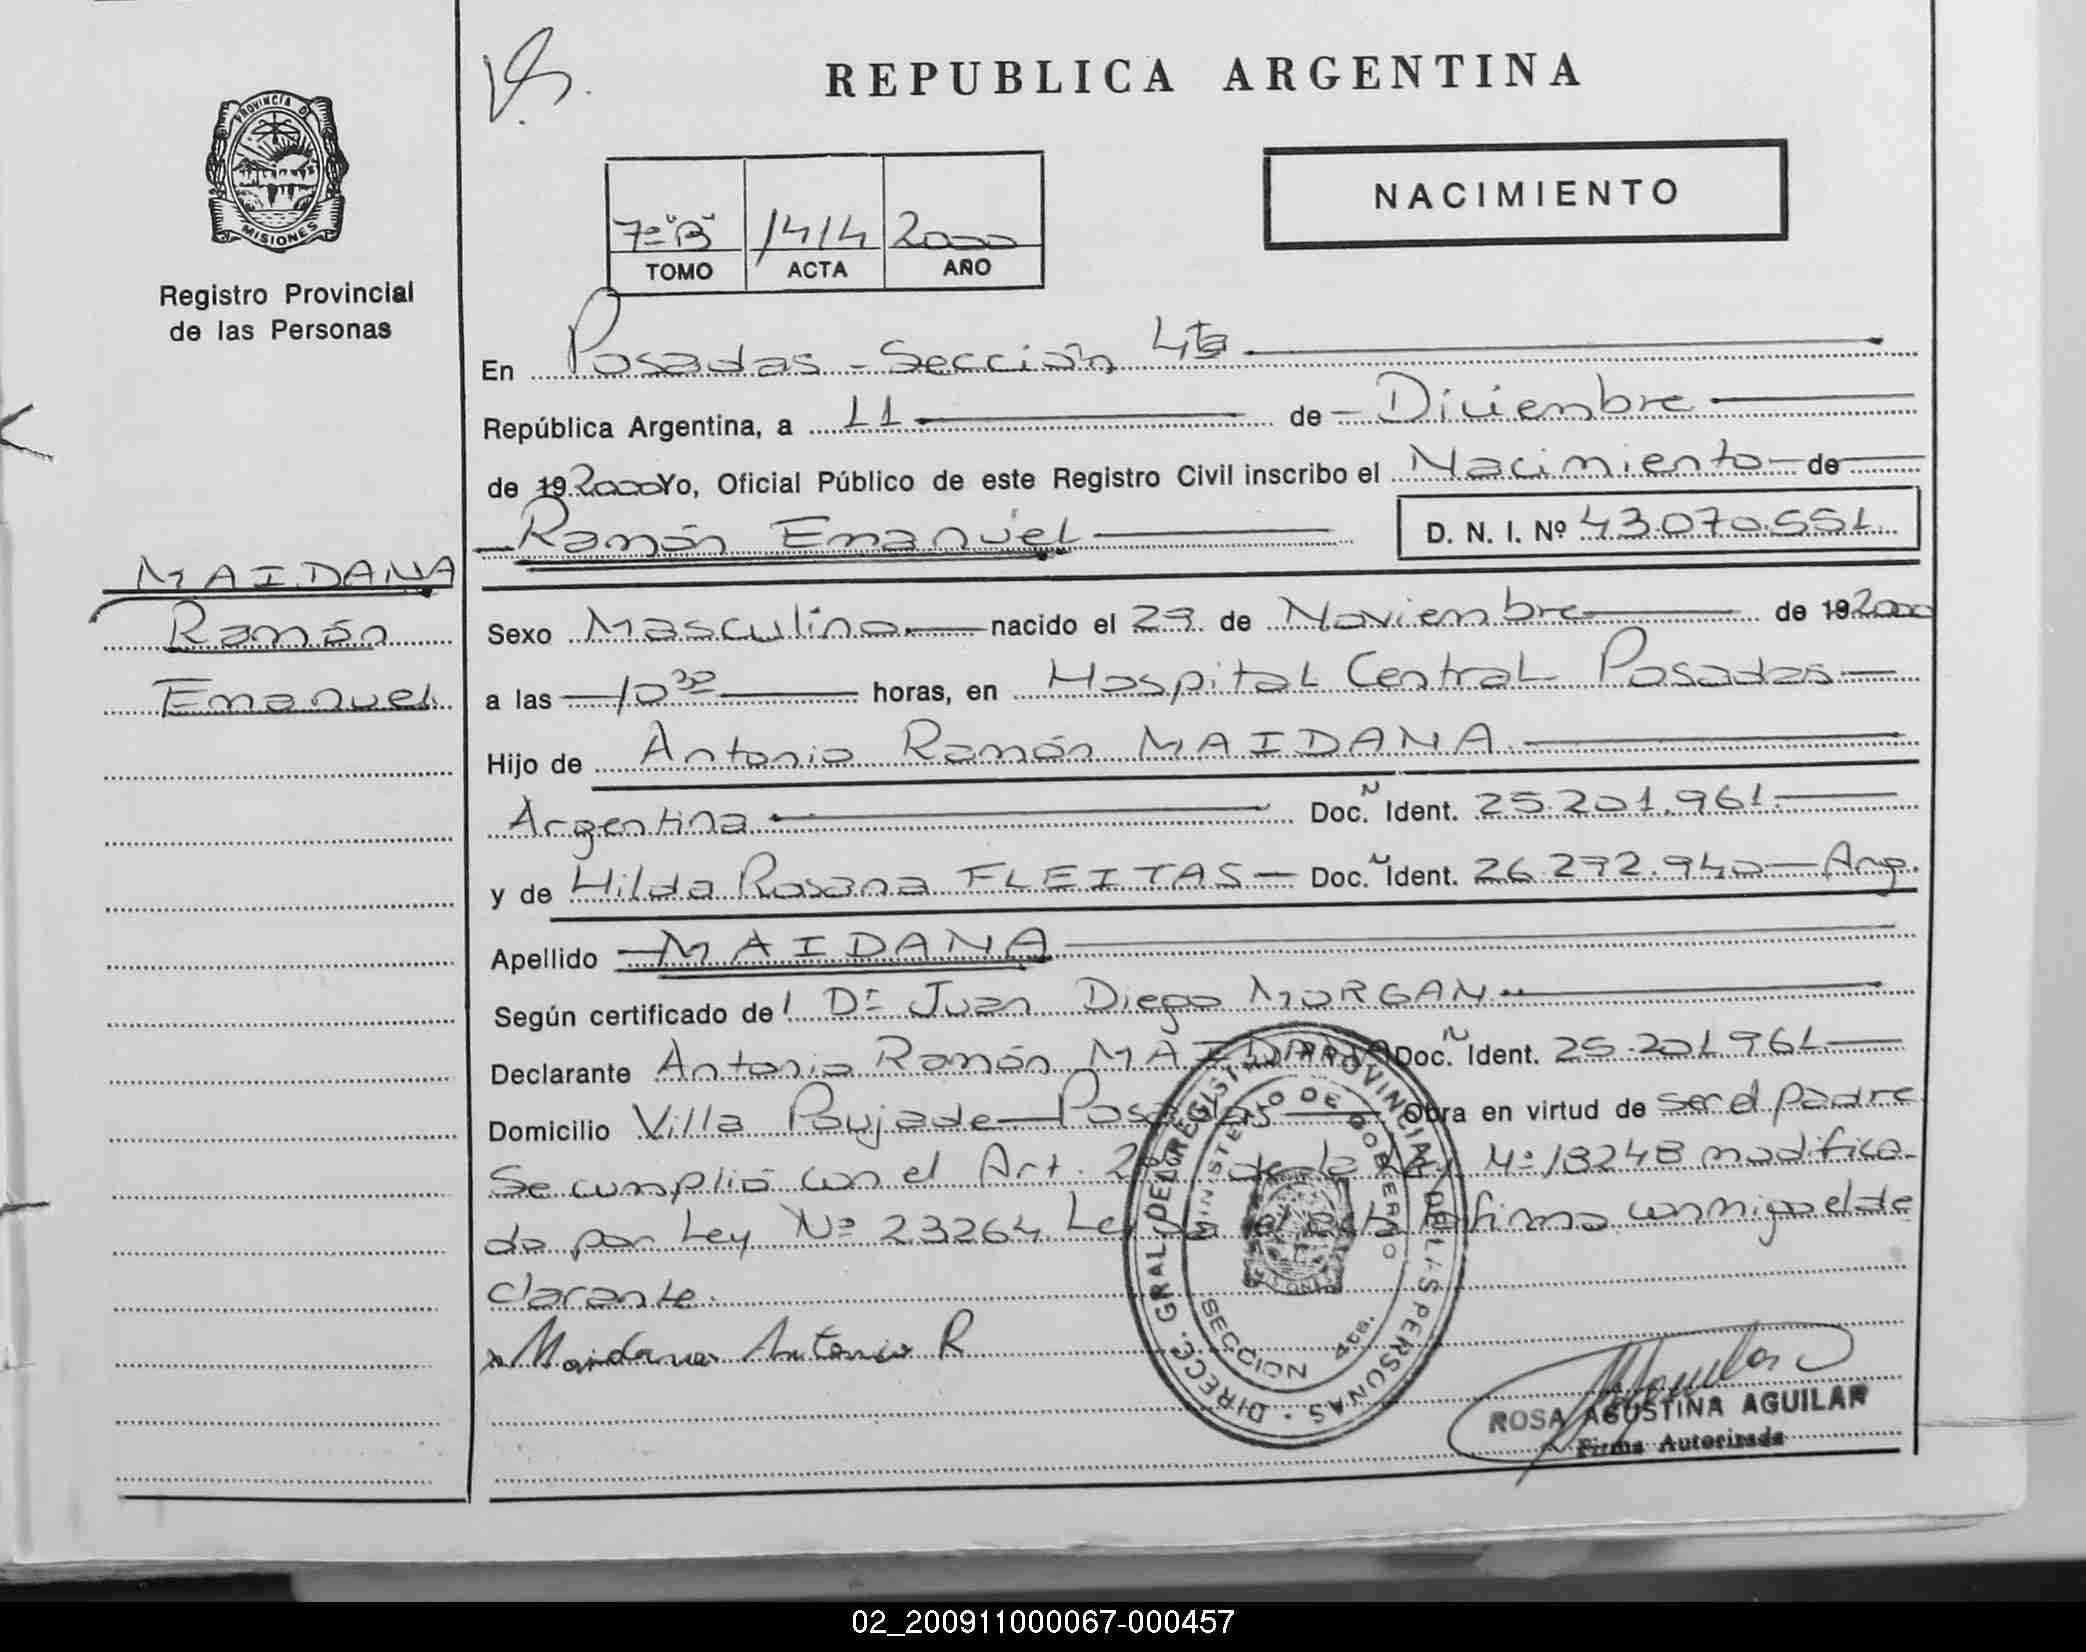 REPUBLICA ARGENTINA
PROVINCIA DE
MISIONES
Registro Provincial
de las Personas
NACIMIENTO
7º "B" 1414 2000
TOMO ACTA AÑO
En Posadas - Sección 4ta
República Argentina, a 11 de Diciembre
de 19 2000 Yo, Oficial Público de este Registro Civil inscribo el Nacimiento de
Ramón Emanuel D. N. I. Nº 43.070.551
MAIDANA
Ramón
Emanuel
Sexo Masculino nacido el 29 de Noviembre de 19 2000
a las 10 30 horas, en Hospital Central Posadas
Hijo de Antonio Ramón MAIDANA
Argentina Doc. Ident. 25.201.961
y de Hilda Rosana FLEITAS Doc. Ident. 26.292.940 Arg.
Apellido MAIDANA
Según certificado del Dr Juan Diego MORGAN
Declarante Antonio Ramón MAIDANA Doc. Ident. 25.201.961
Domicilio Villa Poujade Posadas Obra en virtud de ser el padre
Se cumplió con el Art. de la Ley Nº 18248 modifica-
do por Ley Nº 23264 Leída el acta la firma conmigo el de
clarante.
Maidana Antonio R
DIRECC. GRAL. DEL REGISTRO PROVINCIAL DE LAS PERSONAS
MINISTERIO DE GOBIERNO
SECCION 4ta.
ROSA AGUSTINA AGUILAR
Firma Autorizada
02_200911000067-000457